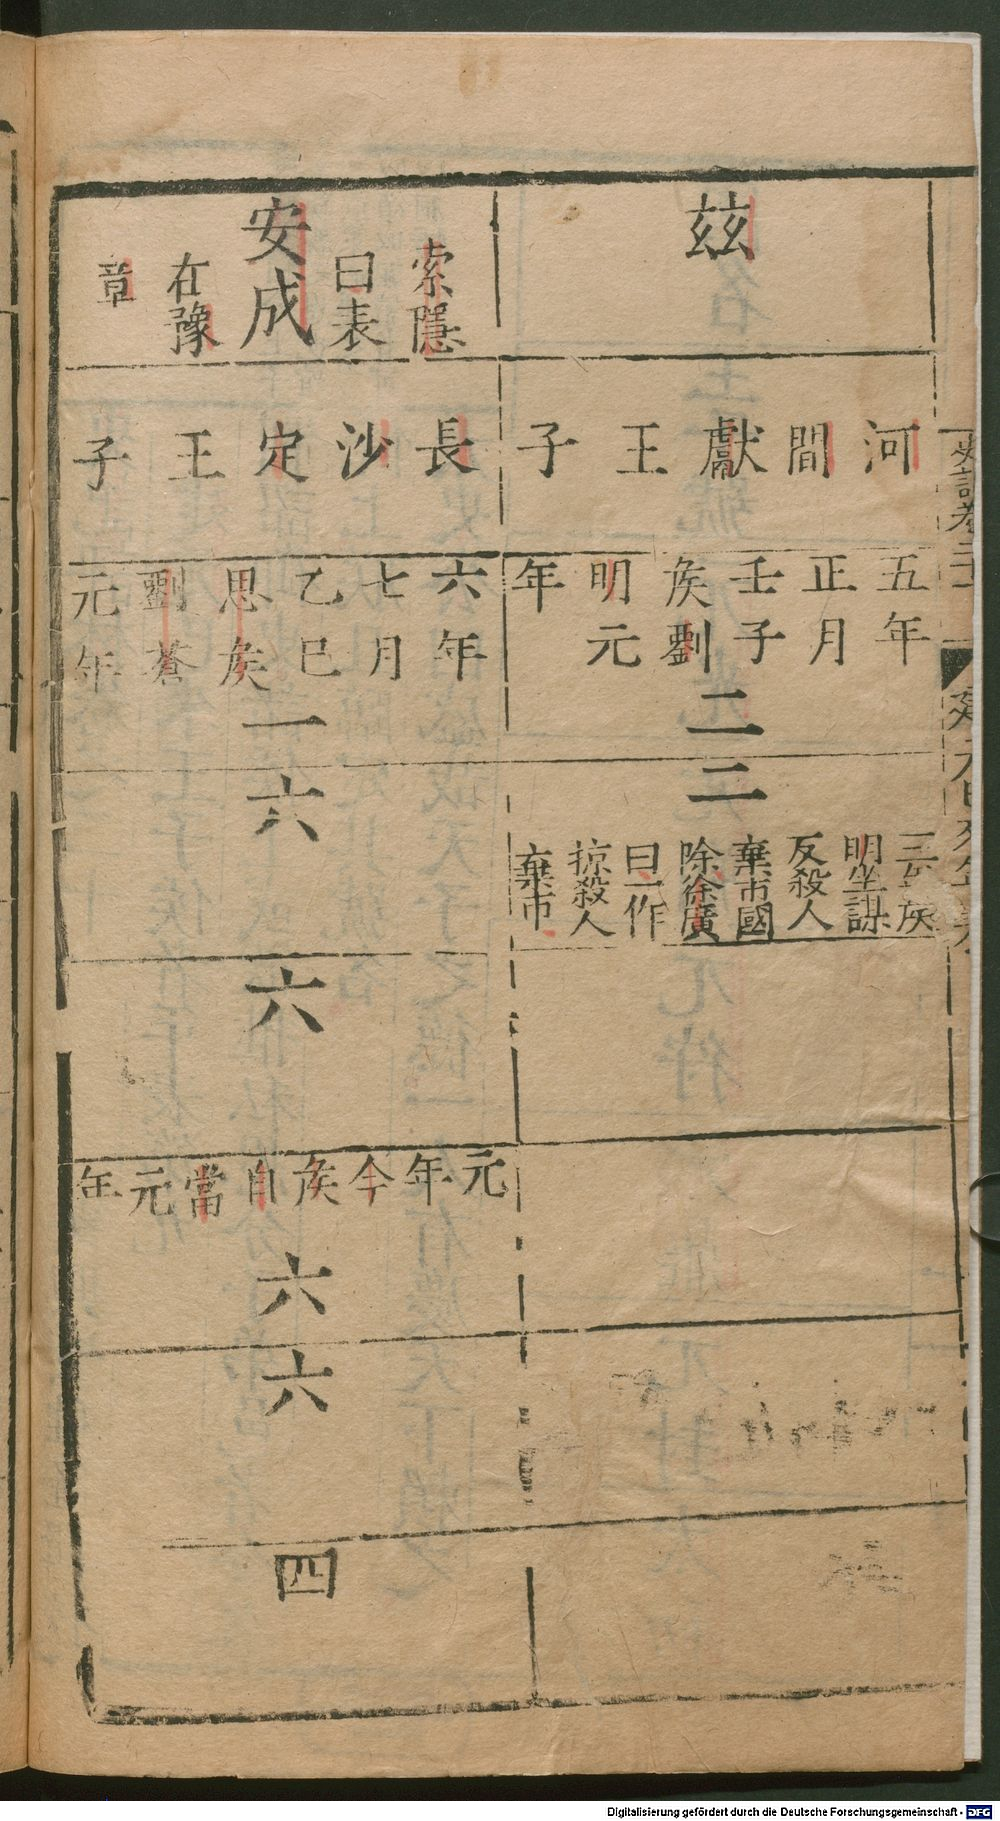 兹
河間獻王子
五年
正月
壬子
矦劉
明元
年
二
三
三年矦
明坐謀
反殺人
棄市國
除徐廣
曰一作
掠殺人
棄市
索隱
曰表
安成
在豫
章
長沙定王子
六年
七月
乙巳
思矦
劉蒼
元年
一
六
六
元年今矦自當元年
六
六
四
Digitalisierung gefördert durch die Deutsche Forschungsgemeinschaft - DFG